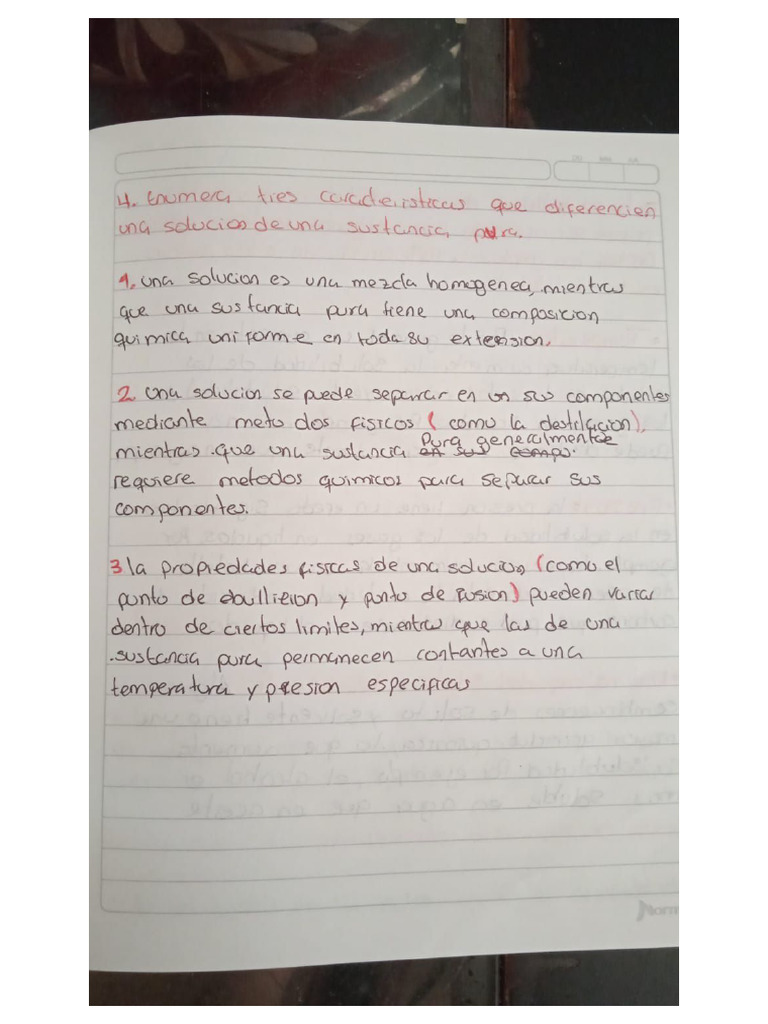 4. Enumera tres caracteristicas que diferencien
una solucion de una sustancia pura.
1. una solucion es una mezcla homogenea, mientras
que una sustancia pura tiene una composicion
quimica uniforme en toda su extension.
2. una solucion se puede separar en sus componentes
mediante metodos fisicos (como la destilacion),
mientras que una sustancia pura generalmente
requiere metodos quimicos para separar sus
componentes.
3 la propiedades fisicas de una solucion (como el
punto de ebullicion y punto de fusion) pueden variar
dentro de ciertos limites, mientras que las de una
sustancia pura permanecen contantes a una
temperatura y presion especificas
Norm